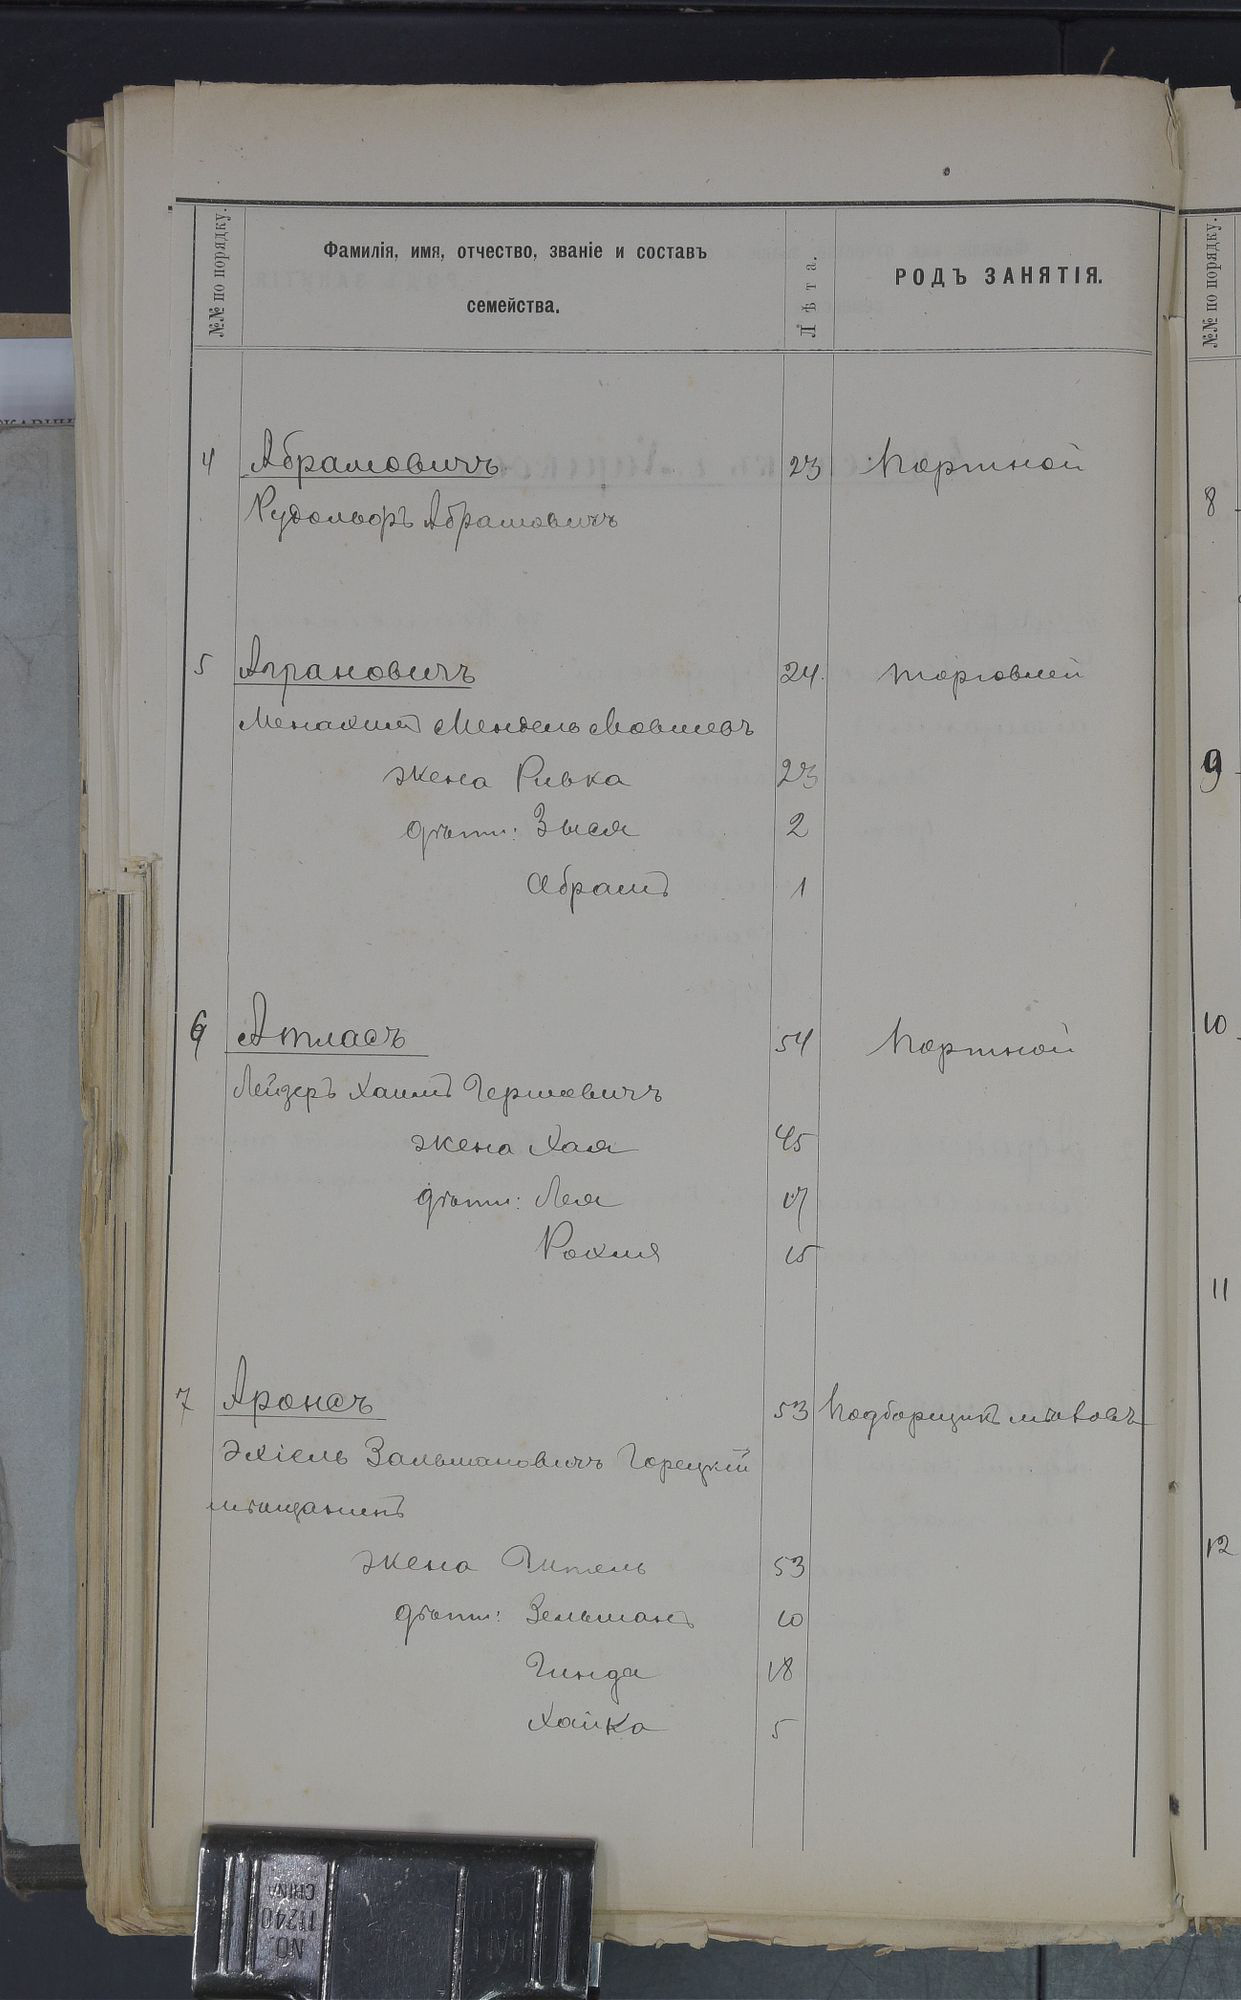 №№ по порядку.
Фамилія, имя, отчество, званіе и составъ
семейства.
Лѣта.
РОДЪ ЗАНЯТІЯ.
№№ по порядку.
4 Абрамовичъ 23 Портной
Рудольфъ Абрамовичъ
8
5 Аграновичъ 24. торговлей
Менахим Мендель Мовшевъ
жена Ривка 23
9
дѣти: Зыся 2
Абрамъ 1
6 Атласъ 54 Портной
10
Лейзеръ Хаимъ Гершовичъ
жена Хая 45
дѣти: Лея 17
Рохля 15
11
7 Аронсъ 53 Подборщикъ мѣховъ
Эхіель Зальмановичъ Горецкій
мѣщанинъ
12
жена Гитель 53
дѣти: Зельманъ 10
Гинда 18
Хайка 5
NO.
11240
CHINA